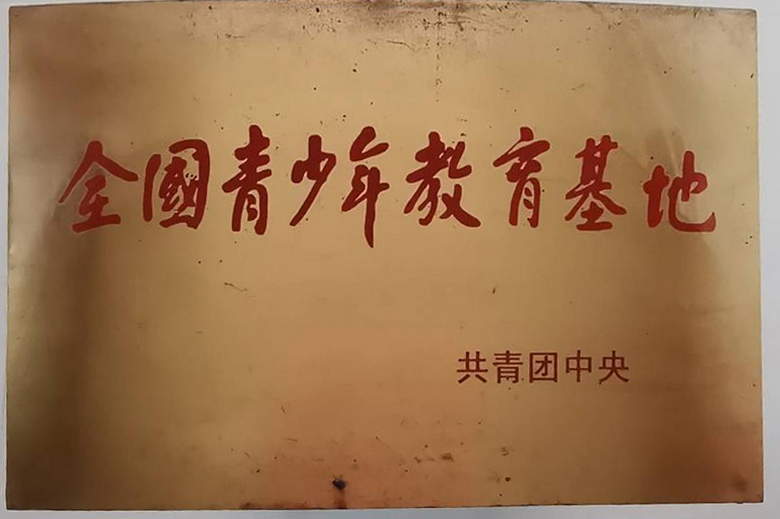 全國青少年教育基地
共青团中央